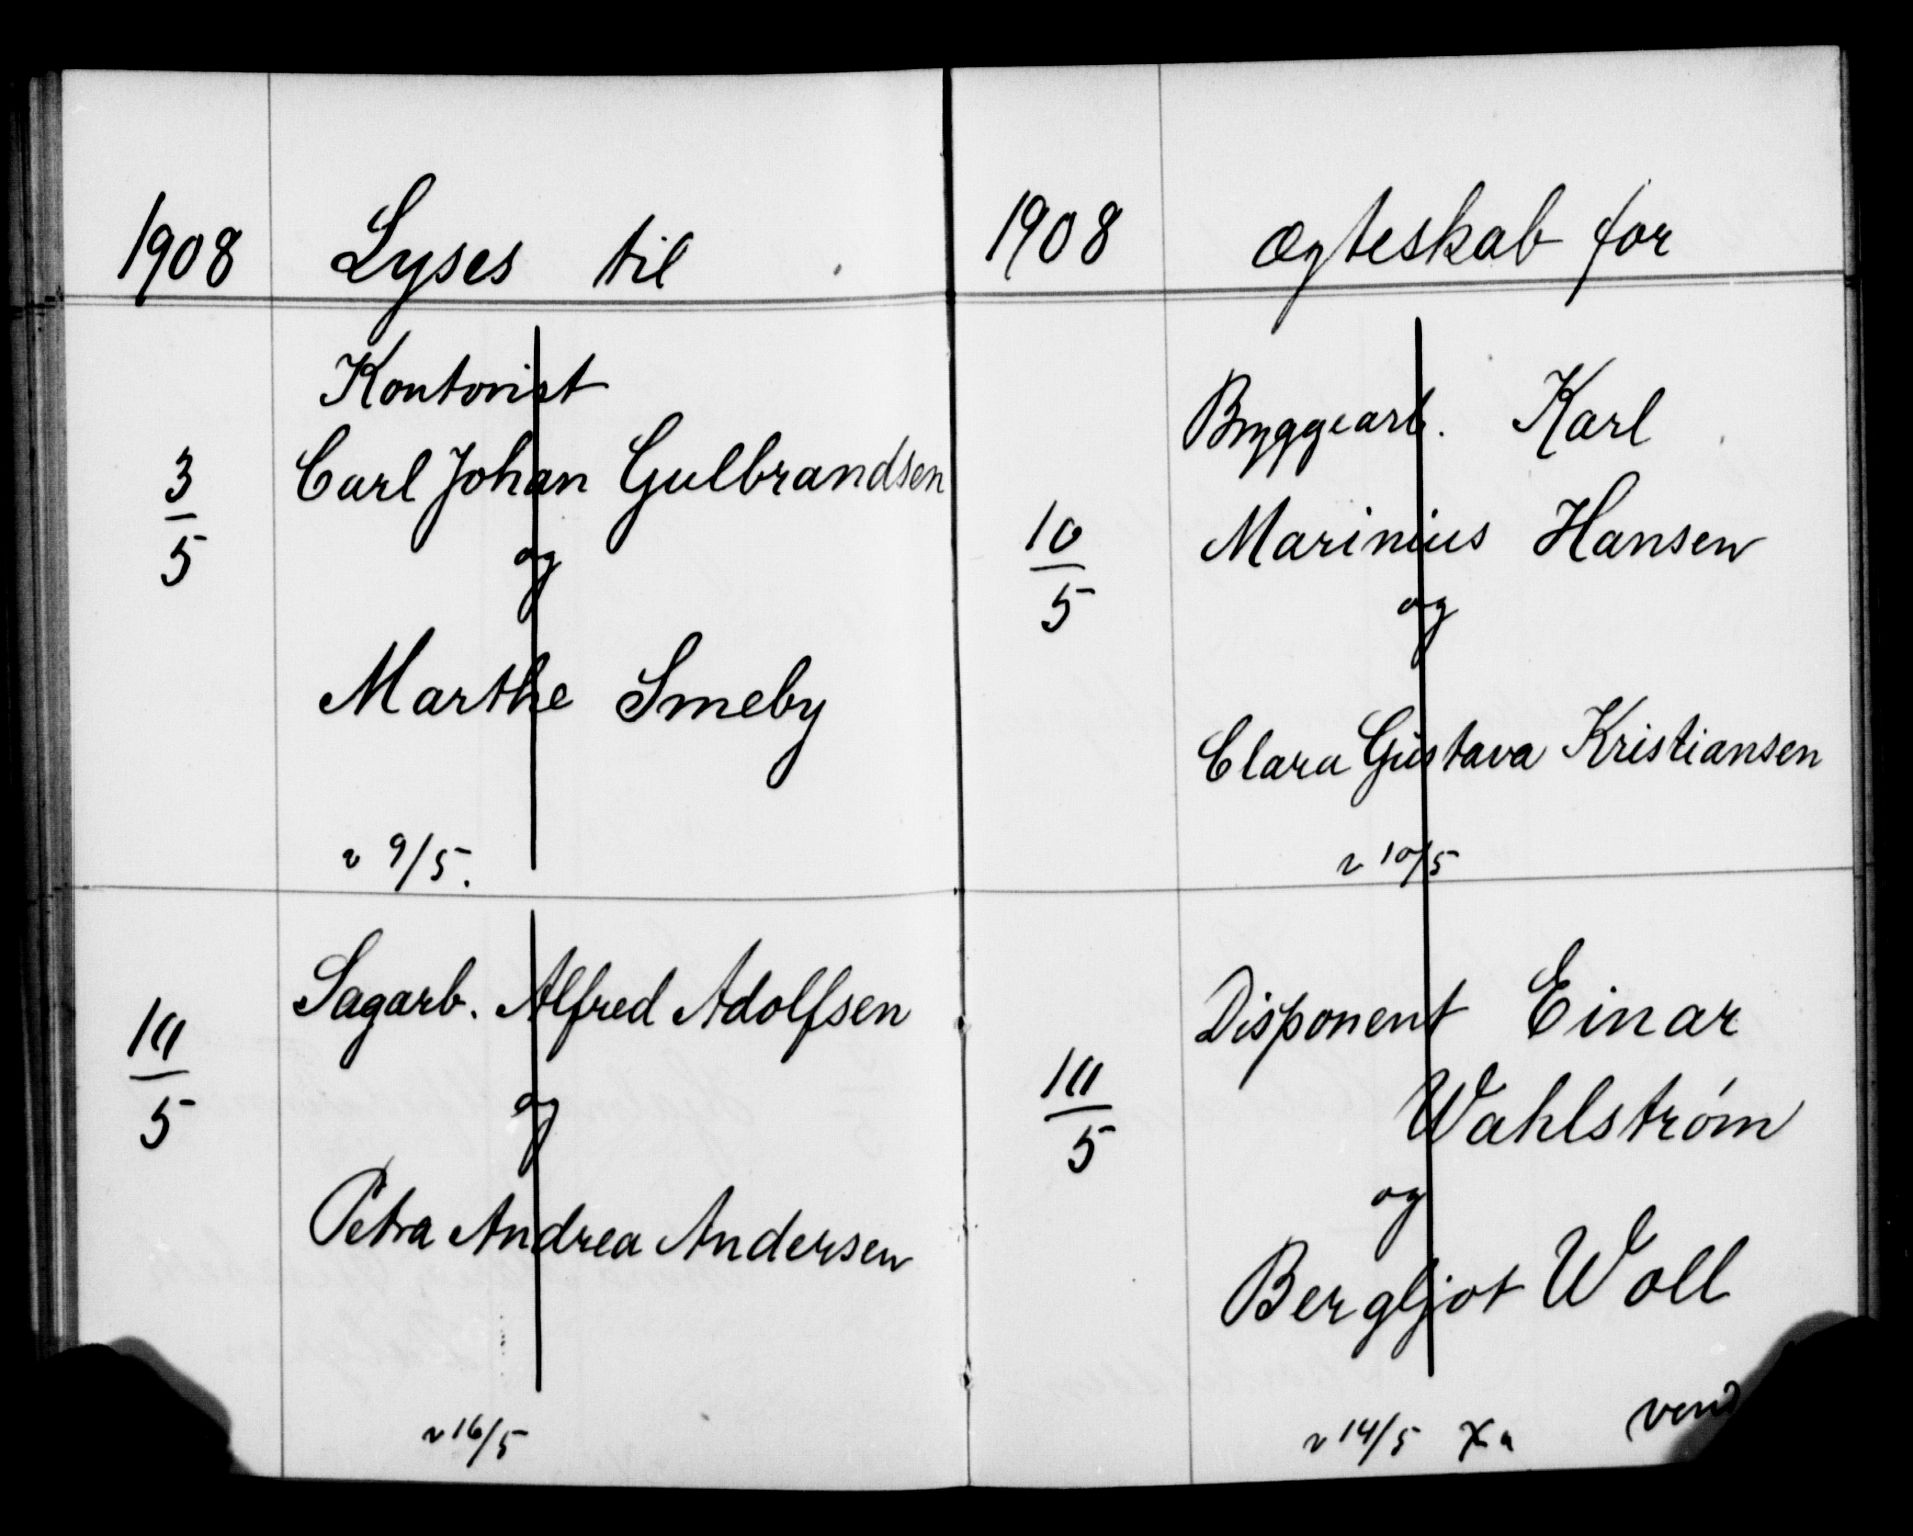 1908 Lyses til
Kontorist
3/5 Carl Johan Gulbrandsen
og
Marthe Smeby
v 9/5.
Sagarb. Alfred Adolfsen
10/5
og
Petra Andrea Andersen
v 16/5
1908 Ægteskab for
Bryggearb. Karl
10/5 Marinius Hansen
og
Clara Gustava Kristiansen
v 10/5
Disponent Einar
10/5 Wahlstrøm
og
Bergljot Woll
v 14/5
vend